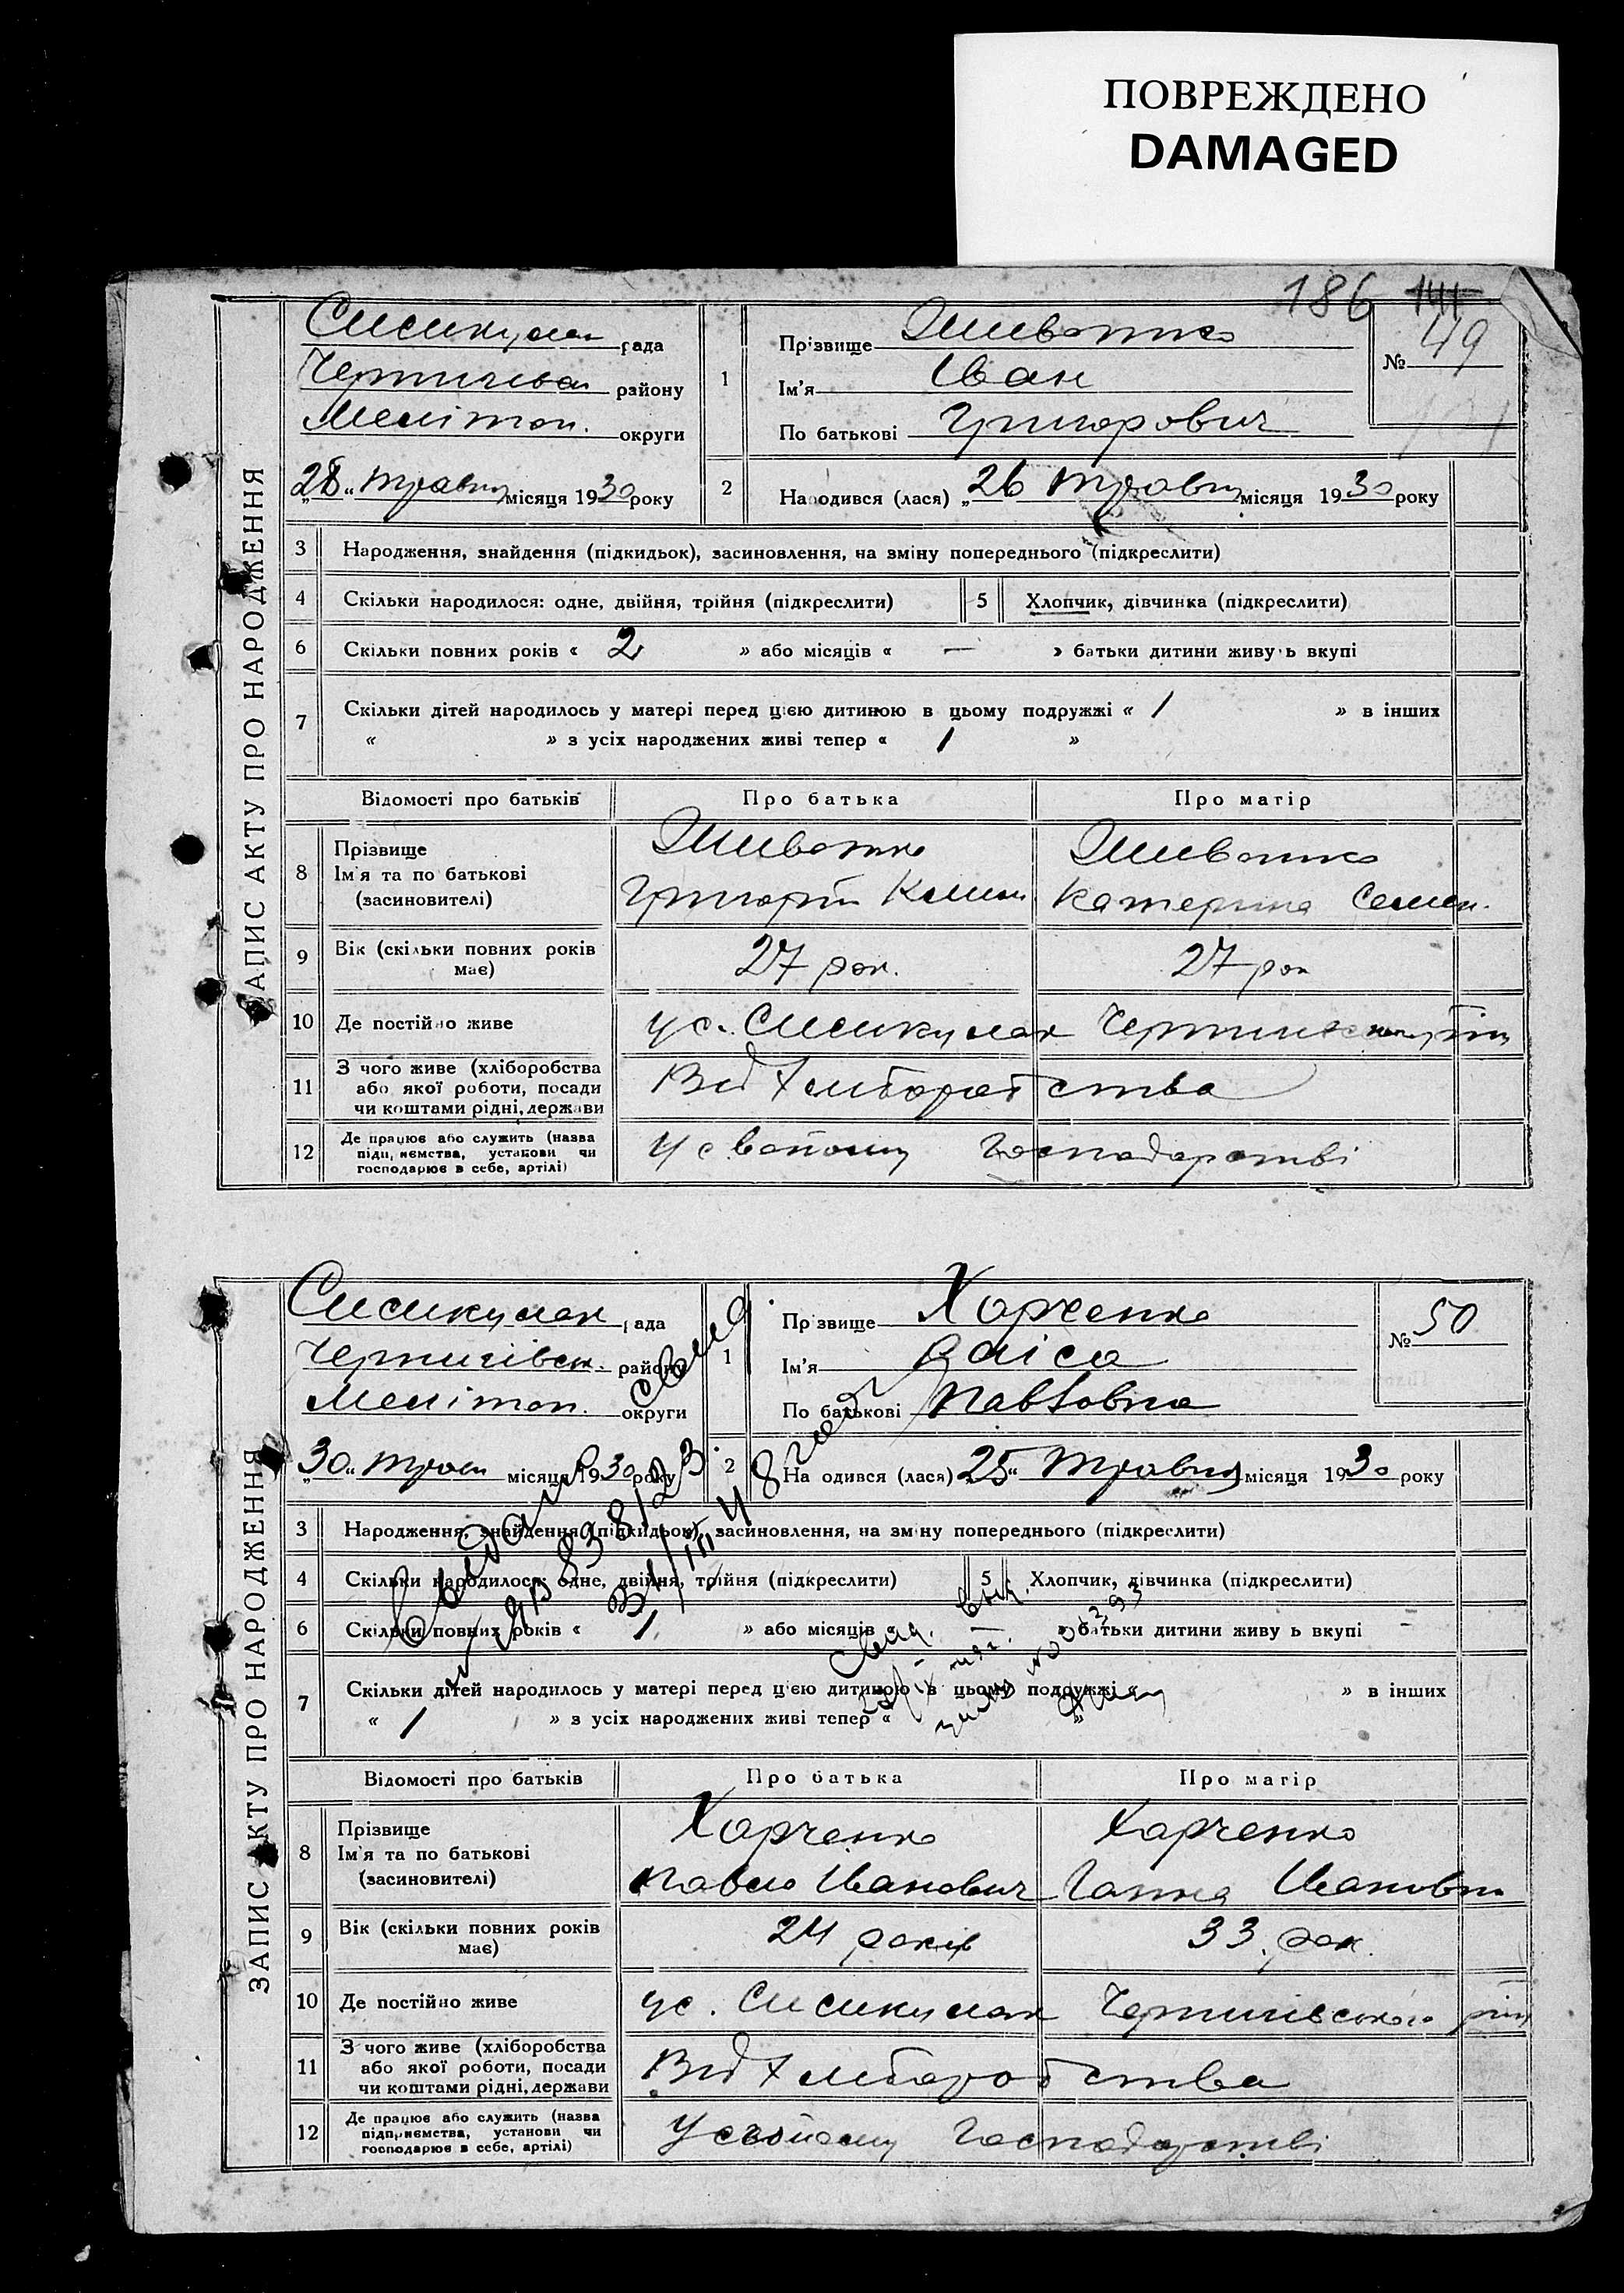 ПОВРЕЖДЕНО
DAMAGED
186 141
ЗАПИС АКТУ ПРО НАРОДЖЕННЯ
Сисикулак рада
Чернигівськ району
Мелітоп. округи
„28“ травня місяця 1930 року
1
Прізвище
Ім'я Іван
По батькові Григорович
№ 49
2
Народився (лася) „26 травня місяця 1930 року
3 Народження, знайдення (підкидьок), засиновлення, на зміну попереднього (підкреслити)
4 Скільки народилося: одне, двійня, трійня (підкреслити)
5 Хлопчик, дівчинка (підкреслити)
6 Скільки повних років « 2 » або місяців « — » батьки дитини живуть вкупі
7 Скільки дітей народилось у матері перед цією дитиною в цьому подружжі « 1 » в інших
« » з усіх народжених живі тепер « 1 »
Відомості про батьків Про батька Про матір
8 Прізвище
Ім'я та по батькові
(засиновителі)
Григорій
Катерина Семен.
9 Вік (скільки повних років
має)
27 рок. 27 рок
10 Де постійно живе
у с. Сисикулак
11 З чого живе (хліборобства
або якої роботи, посади
чи коштами рідні, держави
Від хліборобства
12 Де працює або служить (назва
підприємства, установи чи
господарює в себе, артілі)
У свойому господарстві
ЗАПИС АКТУ ПРО НАРОДЖЕННЯ
Сисикулак рада
Чернигівськ. району
Мелітоп. округи
„30“ трав місяця 1930 року
1
Прізвище Харченко
Ім'я Раіса
По батькові Павловна
№ 50
2
Народився (лася) 25“ травня місяця 1930 року
3 Народження, знайдення (підкидьок), засиновлення, на зміну попереднього (підкреслити)
4 Скільки народилося: одне, двійня, трійня (підкреслити)
5 Хлопчик, дівчинка (підкреслити)
6 Скільки повних років « 1 » або місяців « » батьки дитини живуть вкупі
7 Скільки дітей народилось у матері перед цією дитиною в цьому подружжі « » в інших
« 1 » з усіх народжених живі тепер « »
Відомості про батьків Про батька Про матір
8 Прізвище
Ім'я та по батькові
(засиновителі)
Харченко
Павло Іванович
Харченко
Ганна Івановна
9 Вік (скільки повних років
має)
24 років 33 рок.
10 Де постійно живе
у с. Сисикулак Чернигівського р-ну
11 З чого живе (хліборобства
або якої роботи, посади
чи коштами рідні, держави
Від хліборобства
12 Де працює або служить (назва
підприємства, установи чи
господарює в себе, артілі)
У свойому господарстві